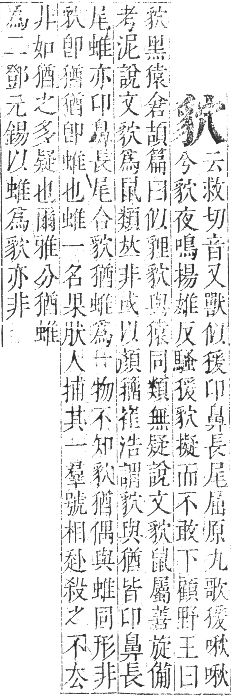 狖云救切音又獸似猨卬鼻長尾屈原九歌猨啾啾
今狖夜鳴揚雄反騷猨狖擬而不敢下顧野王曰
狖黑猿倉頡篇曰似貍狖與猿同類無疑說文狖鼠屬善旋僃
考泥說文狖爲鼠類𠀤非或以顏籀崔浩謂狖與猶皆卬鼻長
尾蜼亦卬鼻長尾合狖猶蜼爲一物不知狖猶偶與蜼同形非
狖卽猶猶卽蜼也蜼一名果肰人捕其一羣號相赴殺之不去
非如猶之多疑也爾雅分猶蜼
爲二鄧元錫以蜼爲狖亦非